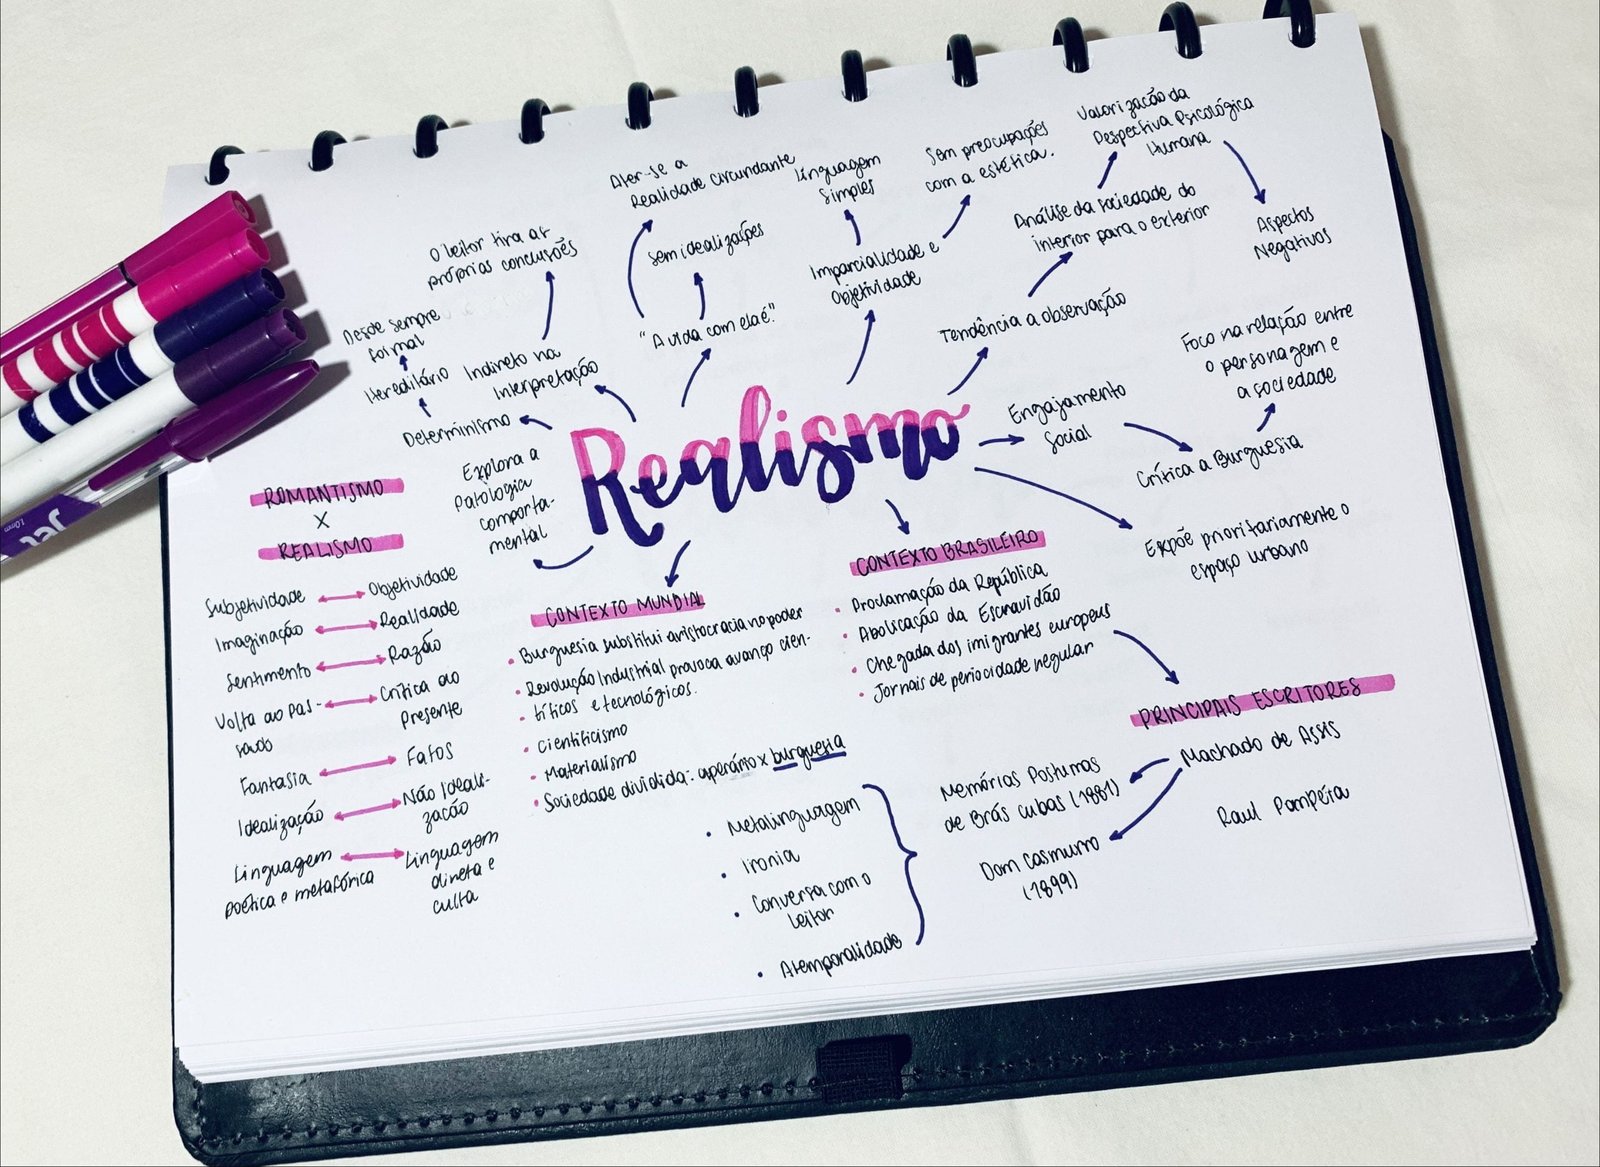 Realismo
Ater-se a
Realidade circundante
Sem idealizações
"A vida com ela é."
O leitor tira as
próprias conclusões
Indireto na
Interpretação
Desde sempre
formal
Hereditário
Determinismo
Explora a
Patologia
comporta-
mental
Linguagem
Simples
Sem preocupações
com a estética.
Imparcialidade e
Objetividade
Valorização da
Despectiva Psicológica
Humana
Análise da sociedade do
interior para o exterior
Aspectos
Negativos
Tendência a observação
Engajamento
Social
Foco na relação entre
o personagem e
a sociedade
Crítica a Burguesia
Expõe prioritariamente o
espaço urbano
ROMANTISMO
X
REALISMO
Subjetividade Objetividade
Imaginação Realidade
Sentimento Razão
Volta ao Pas- Crítica ao
sado Presente
Fantasia Fatos
Idealização Não Ideali-
zação
Linguagem Linguagem
poética e metafórica direta e
culta
CONTEXTO MUNDIAL
• Burguesia substitui aristocracia no poder
• Revolução Industrial provoca avanço cien-
• tíficos e tecnológicos.
• Cientificismo
• Materialismo
• Sociedade dividida: operário x burguesia
CONTEXTO BRASILEIRO
• Proclamação da República
• Abolicação da Escravidão
• Chegada dos imigrantes europeus
• Jornais de periocidade regular
PRINCIPAIS ESCRITORES
Machado de Assis
Raul Pompéia
Memórias Postumas
de Brás Cubas (1881)
Dom Casmurro
(1899)
• Metalinguagem
• Ironia
• Conversa com o
Leitor
• Atemporalidade
Jet
1.0mm